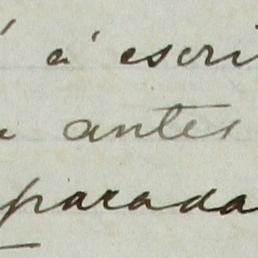 á escri
antes
parada